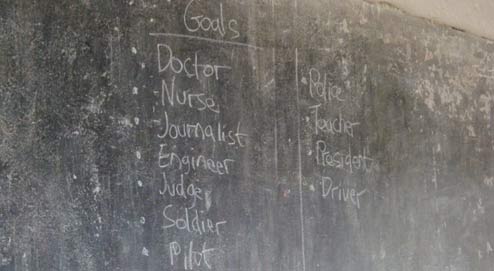 Goals
Doctor
Nurse
Journalist
Engineer
Judge
Soldier
Pilot
Police
Teacher
President
Driver